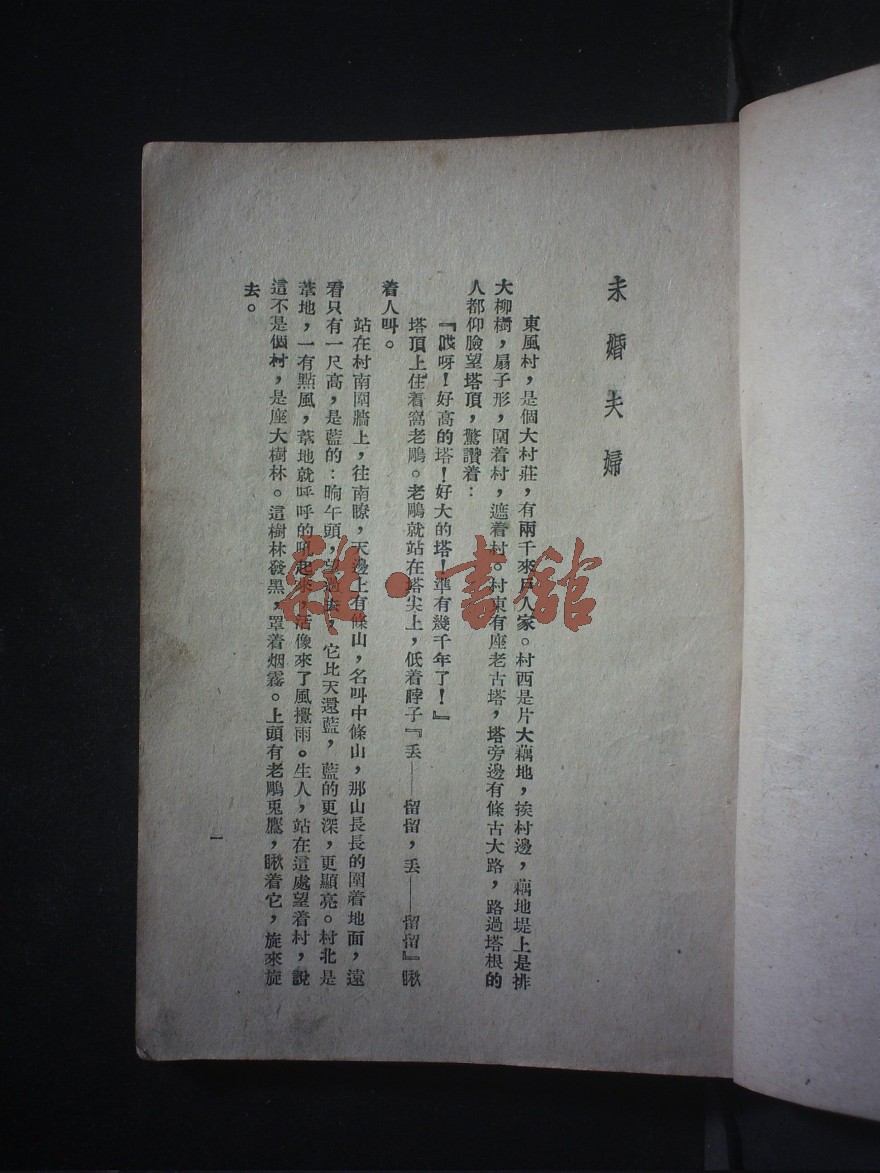 未婚夫婦
東風村，是個大村莊，有兩千來戶人家。村西是片大藕地，挨村邊，藕地堤上是排
大柳樹，扇子形，圍着村，遮着村。村東有座老古塔，塔旁邊有條古大路，路過塔根的
人都仰臉望塔頂，驚讚着：
『哎呀！好高的塔！好大的塔！準有幾千年了！』
塔頂上住着窩老鵰。老鵰就站在塔尖上，低着脖子『丢——留留，丢——留留』瞅
着人叫。
站在村南圍牆上，往南瞭，天邊上有條山，名叫中條山，那山長長的圍着地面，遠
看只有一尺高，是藍的：晌午頭，望過去，它比天還藍，藍的更深，更顯亮。村北是
葦地，一有點風，葦地就呼呼的吼起來，活像來了風攪雨。生人，站在這處望着村，說
這不是個村，是座大樹林。這樹林發黑，罩着烟霧。上頭有老鵰兎鷹，瞅着它，旋來旋
去。
一
雜·書舘